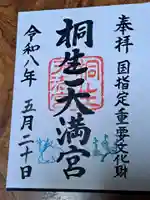 奉拝
国指定重要文化財
桐生天満宮
令和八年
五月二十日